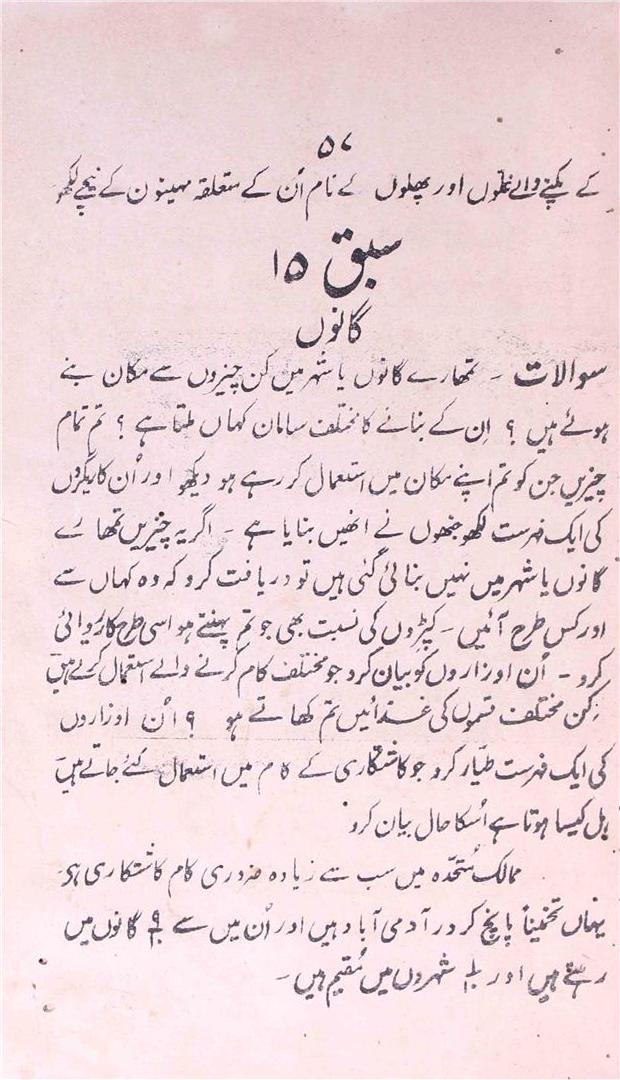 ۵۷
کے پکنے والے غلّوں اور پھلوں کے نام اُن کے متعلقہ مہینون کے نیچے لکھو
سبق ۱۵
گانوں
سوالات - تمھارے گانوں یا شہر میں کن چیزوں سے مکان بنے
ہوئے ہیں ؟ اِن کے بنانے کا مختلف سامان کہاں ملتا ہے ؟ تم تمام
چیزیں جن کو تم اپنے مکان میں استعمال کر رہے ہو دیکھو اور اُن کاریگروں
کی ایک فہرست لکھو جنھوں نے انھیں بنایا ہے - اگر یہ چیزیں تمھارے
گانوں یا شہر میں نہیں بنائی گئی ہیں تو دریافت کرو کہ وہ کہاں سے
اور کس طرح آئیں - کپڑوں کی نسبت بھی جو تم پہنتے ہو اسی طرح کارروائی
کرو - اُن اوزاروں کو بیان کرو جو مختلف کام کرنے والے استعمال کرتے ہیں
کِن مختلف قسموں کی غذائیں تم کھاتے ہو ؟ اُن اوزاروں
کی ایک فہرست طیّار کرو جو کاشتکاری کے کام میں استعمال کئے جاتے ہیں
ہل کیسا ہوتا ہے اُسکا حال بیان کرو
ممالک مُتحدّہ میں سب سے زیادہ ضروری کام کاشتکاری ہی۔
یہاں تخمیناً پانچ کرور آدمی آباد ہیں اور اُن میں سے گانوں میں
رہتے ہیں اور شہروں میں مُقیم ہیں -